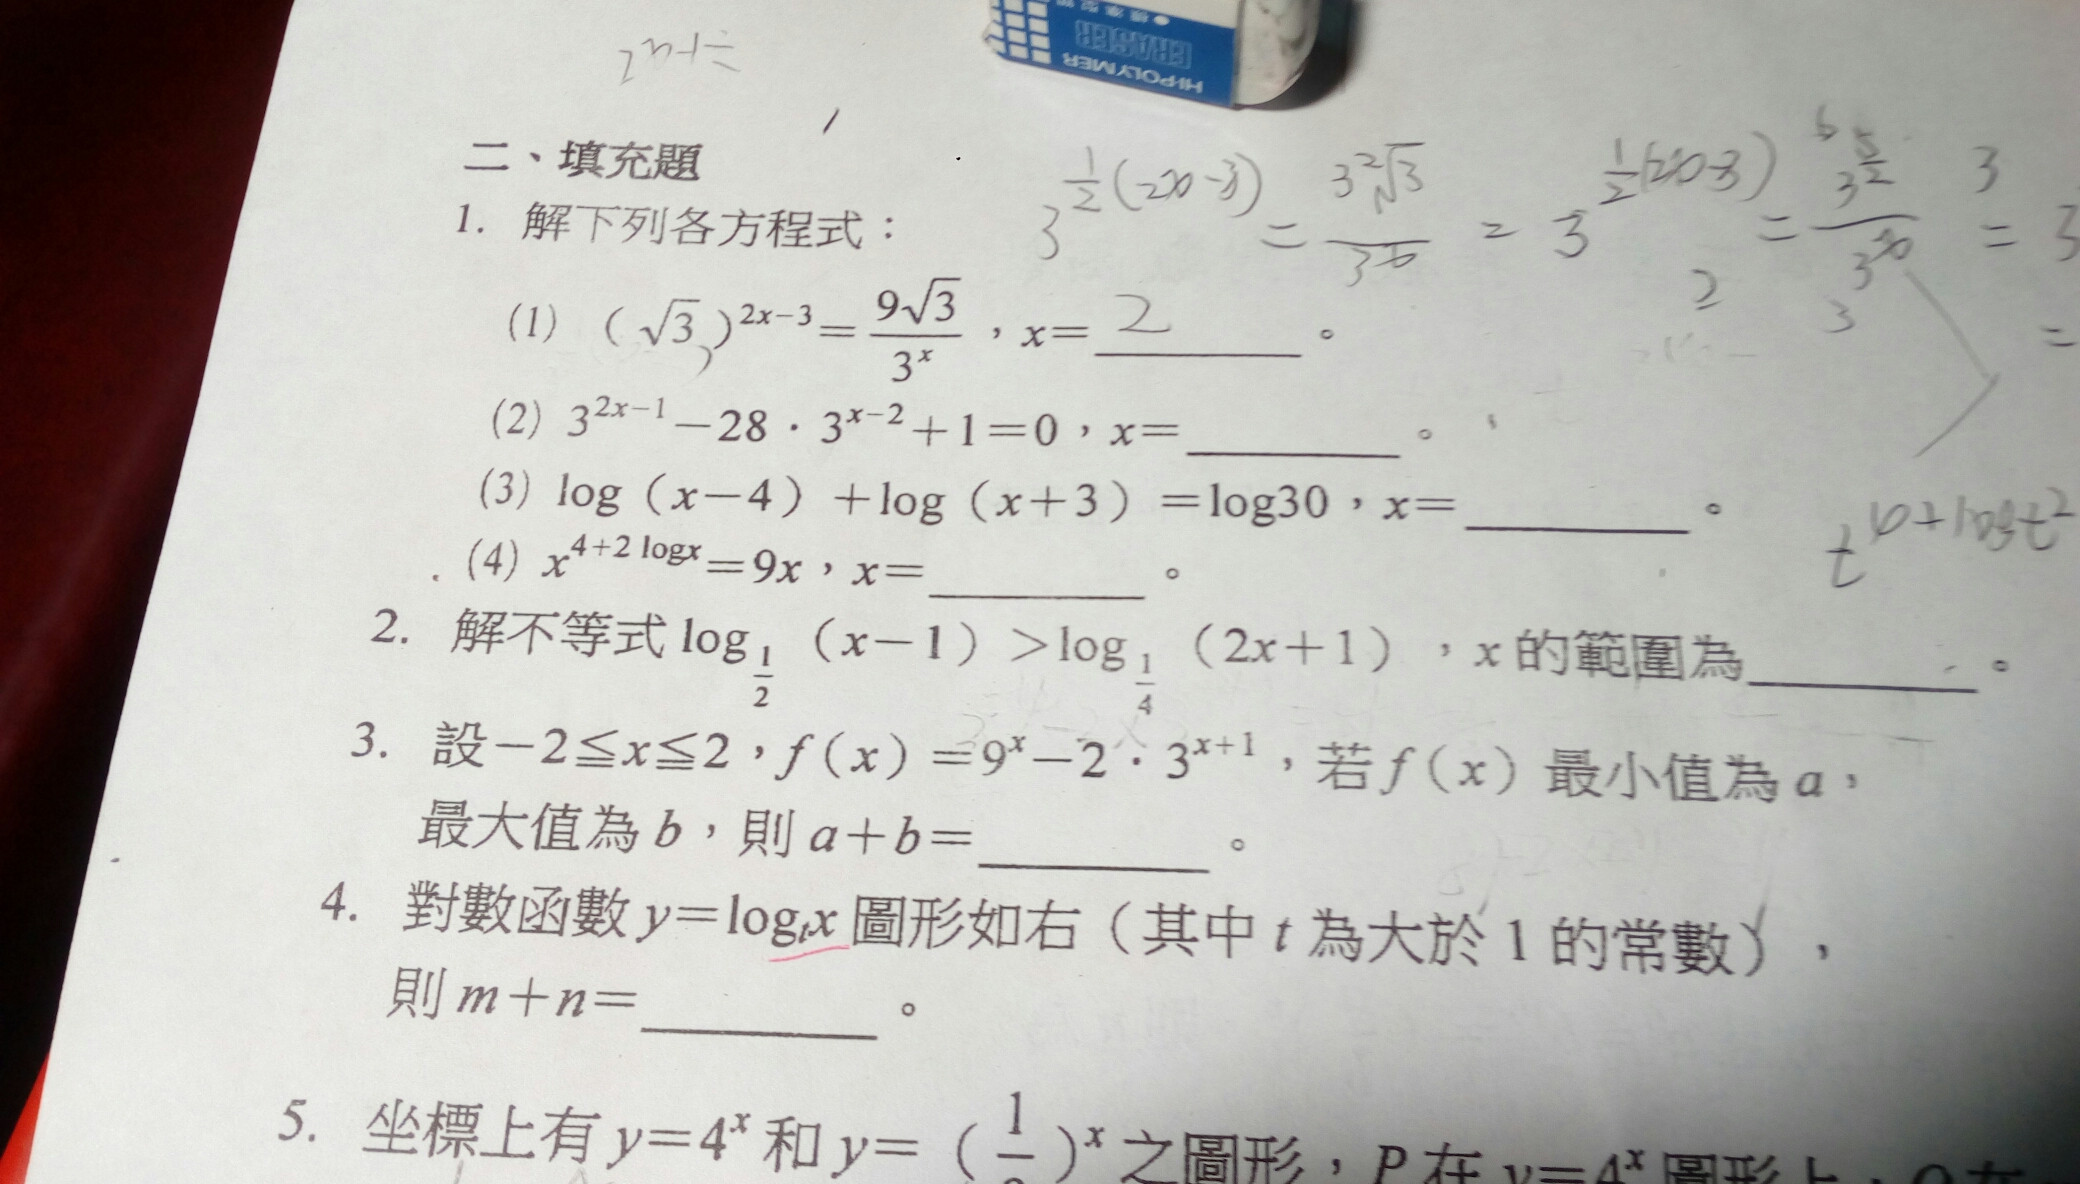 標準型
ERASER
HI-POLYMER
二、填充題
1. 解下列各方程式：
(1) (√3)^{2x-3}=\frac{9√3}{3^x}，x=2。
3^{\frac{1}{2}(2x-3)} = \frac{3^2√3}{3^x} = 3^{\frac{1}{2}(2x-3)} = \frac{3^{\frac{5}{2}}}{3^x} = 3
(2) 3^{2x-1}-28·3^{x-2}+1=0，x=______。
(3) log（x-4）+log（x+3）=log30，x=______。
(4) x^{4+2 logx}=9x，x=______。
t^{4+logt^2}
2. 解不等式 log_{\frac{1}{2}}（x-1）>log_{\frac{1}{4}}（2x+1），x 的範圍為______。
3. 設-2≦x≦2，f(x)=9^x-2·3^{x+1}，若 f(x) 最小值為 a，
最大值為 b，則 a+b=______。
4. 對數函數 y=log_t x 圖形如右（其中 t 為大於 1 的常數），
則 m+n=______。
5. 坐標上有 y=4^x 和 y=（\frac{1}{}）^x 之圖形，P 在 y=4^x 圖形上，Q 在